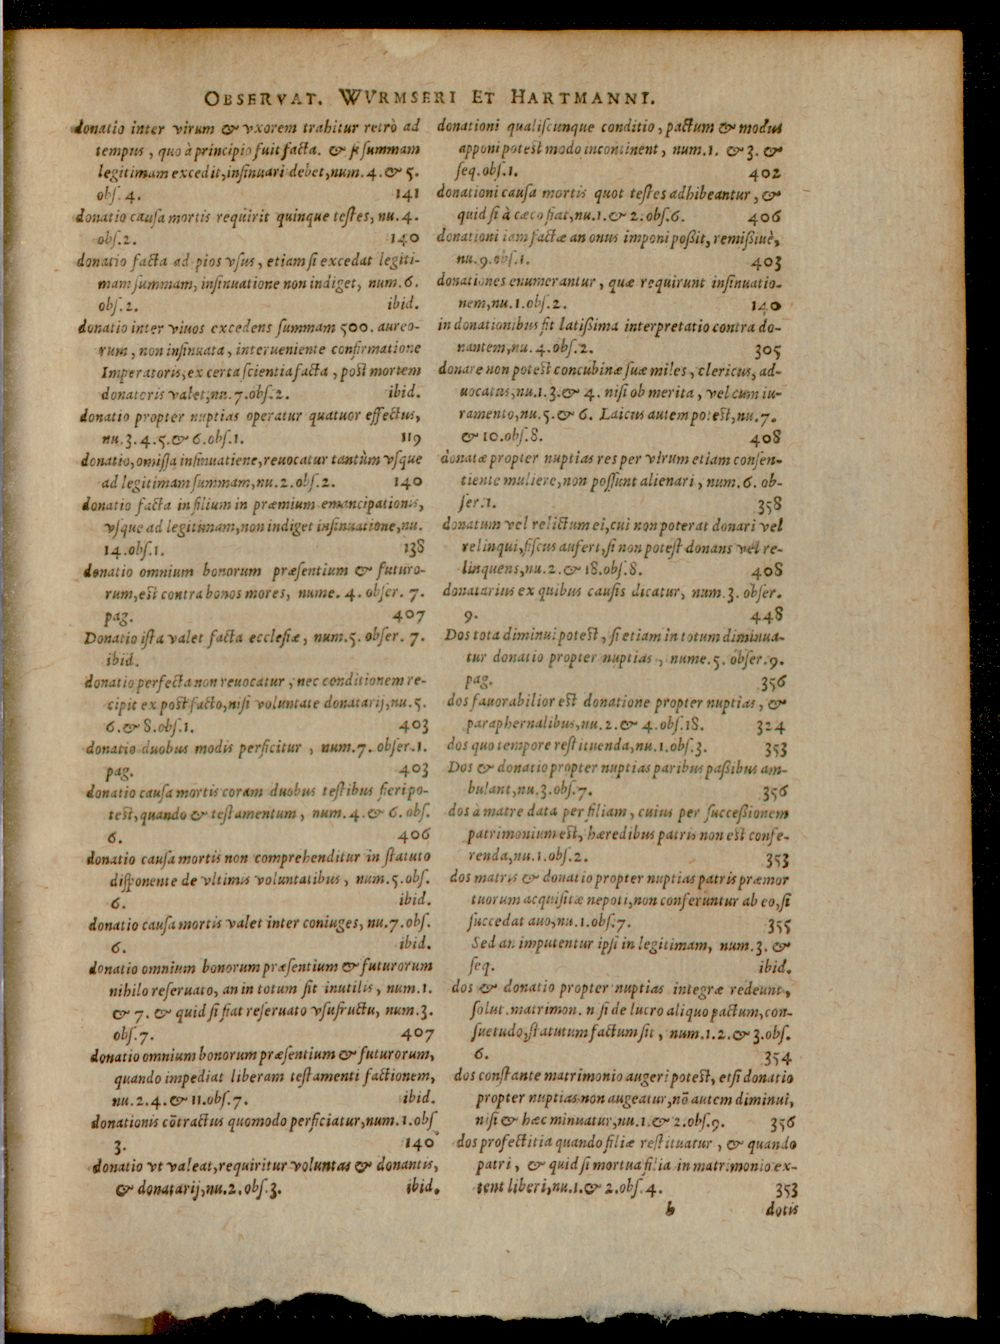 OBSERVAT. WVRMSERI ET HARTMANNI.
donatio inter virum & vxorem trahitur retrò ad
tempus, quo à principio fuit facta. & si summam
legitimam excedit, insinuari debet, num. 4. & 5.
obs. 4. 141
donatio causa mortis requirit quinque testes, nu. 4.
obs. 2. 140
donatio facta ad pios vsus, etiam si excedat legiti-
mam summam, insinuatione non indiget, num. 6.
obs. 2. ibid.
donatio inter viuos excedens summam 500. aureo-
rum, non insinuata, interueniente confirmatione
Imperatoris, ex certa scientia facta, post mortem
donatoris valet, nu. 7. obs. 2. ibid.
donatio propter nuptias operatur quatuor effectus,
nu. 3. 4. 5. & 6. obs. 1. 119
donatio, omissa insinuatiene, reuocatur tantùm vsque
ad legitimam summam, nu. 2. obs. 2. 140
donatio facta in filium in præmium emancipationis,
vsque ad legitimam, non indiget insinuatione, nu.
14. obs. 1. 138
donatio omnium bonorum præsentium & futuro-
rum, est contra bonos mores, nume. 4. obser. 7.
pag. 407
Donatio ista valet facta ecclesiæ, num. 5. obser. 7.
ibid.
donatio perfecta non reuocatur, nec conditionem re-
cipit ex post facto, nisi voluntate donatarij, nu. 5.
6. & 8. obs. 1. 403
donatio duobus modis perficitur, num. 7. obser. 1.
pag. 403
donatio causa mortis coram duobus testibus fieri po-
test, quando & testamentum, num. 4. & 6. obs.
6. 406
donatio causa mortis non comprehenditur in statuto
disponente de vltimis voluntatibus, num. 5. obs.
6. ibid.
donatio causa mortis valet inter coniuges, nu. 7. obs.
6. ibid.
donatio omnium bonorum præsentium & futurorum
nihilo reseruato, an in totum sit inutilis, num. 1.
& 7. & quid si fiat reseruato vsufructu, num. 3.
obs. 7. 407
donatio omnium bonorum præsentium & futurorum,
quando impediat liberam testamenti factionem,
nu. 2. 4. & 11. obs. 7. ibid.
donationis cōtractus quomodo perficiatur, num. 1. obs
3. 140
donatio vt valeat, requiritur voluntas & donantis,
& donatarij, nu. 2. obs. 3. ibid.
donationi qualiscunque conditio, pactum & modus
apponi potest modo incontinent, num. 1. & 3. &
seq. obs. 1. 402
donationi causa mortis quot testes adhibeantur, &
quid si à cæco fiat, nu. 1. & 2. obs. 6. 406
donationi iam factæ an onus imponi possit, remissiuè,
nu. 9. obs. 1. 403
donationes enumerantur, quæ requirunt insinuatio-
nem, nu. 1. obs. 2. 140
in donationibus fit latissima interpretatio contra do-
nantem, nu. 4. obs. 2. 305
donare non potest concubinæ suæ miles, clericus, ad-
uocatus, nu. 1. 3. & 4. nisi ob merita, vel cum iu-
ramento, nu. 5. & 6. Laicus autem potest, nu. 7.
& 10. obs. 8. 408
donatæ propter nuptias res per virum etiam consen-
tiente muliere, non possunt alienari, num. 6. ob-
ser. 1. 358
donatum vel relictum ei, cui non poterat donari vel
relinqui, fiscus aufert, si non potest donans vel re-
linquens, nu. 2. & 18. obs. 8. 408
donatarius ex quibus causis dicatur, num. 3. obser.
9. 448
Dos tota diminui potest, si etiam in totum diminua-
tur donatio propter nuptias, nume. 5. obser. 9.
pag. 356
dos fauorabilior est donatione propter nuptias, &
paraphernalibus, nu. 2. & 4. obs. 18. 324
dos quo tempore restituenda, nu. 1. obs. 3. 353
Dos & donatio propter nuptias paribus passibus am-
bulant, nu. 3. obs. 7. 356
dos à matre data per filiam, cuius per successionem
patrimonium est, hæredibus patris non est confe-
renda, nu. 1. obs. 2. 353
dos matris & donatio propter nuptias patris præmor
tuorum acquisitæ nepoti, non conferuntur ab eo, si
succedat auo, nu. 1. obs. 7. 355
Sed an imputentur ipsi in legitimam, num. 3. &
seq. ibid.
dos & donatio propter nuptias integræ redeunt,
solut. matrimon. n si de lucro aliquo pactum, con-
suetudo, statutum factum sit, num. 1. 2. & 3. obs.
6. 354
dos constante matrimonio augeri potest, etsi donatio
propter nuptias non augeatur, nō autem diminui,
nisi & hæc minuatur, nu. 1. & 2. obs. 9. 356
dos profectitia quando filiæ restituatur, & quando
patri, & quid si mortua filia in matrimonio ex-
tent liberi, nu. 1. & 2. obs. 4. 353
b dotis